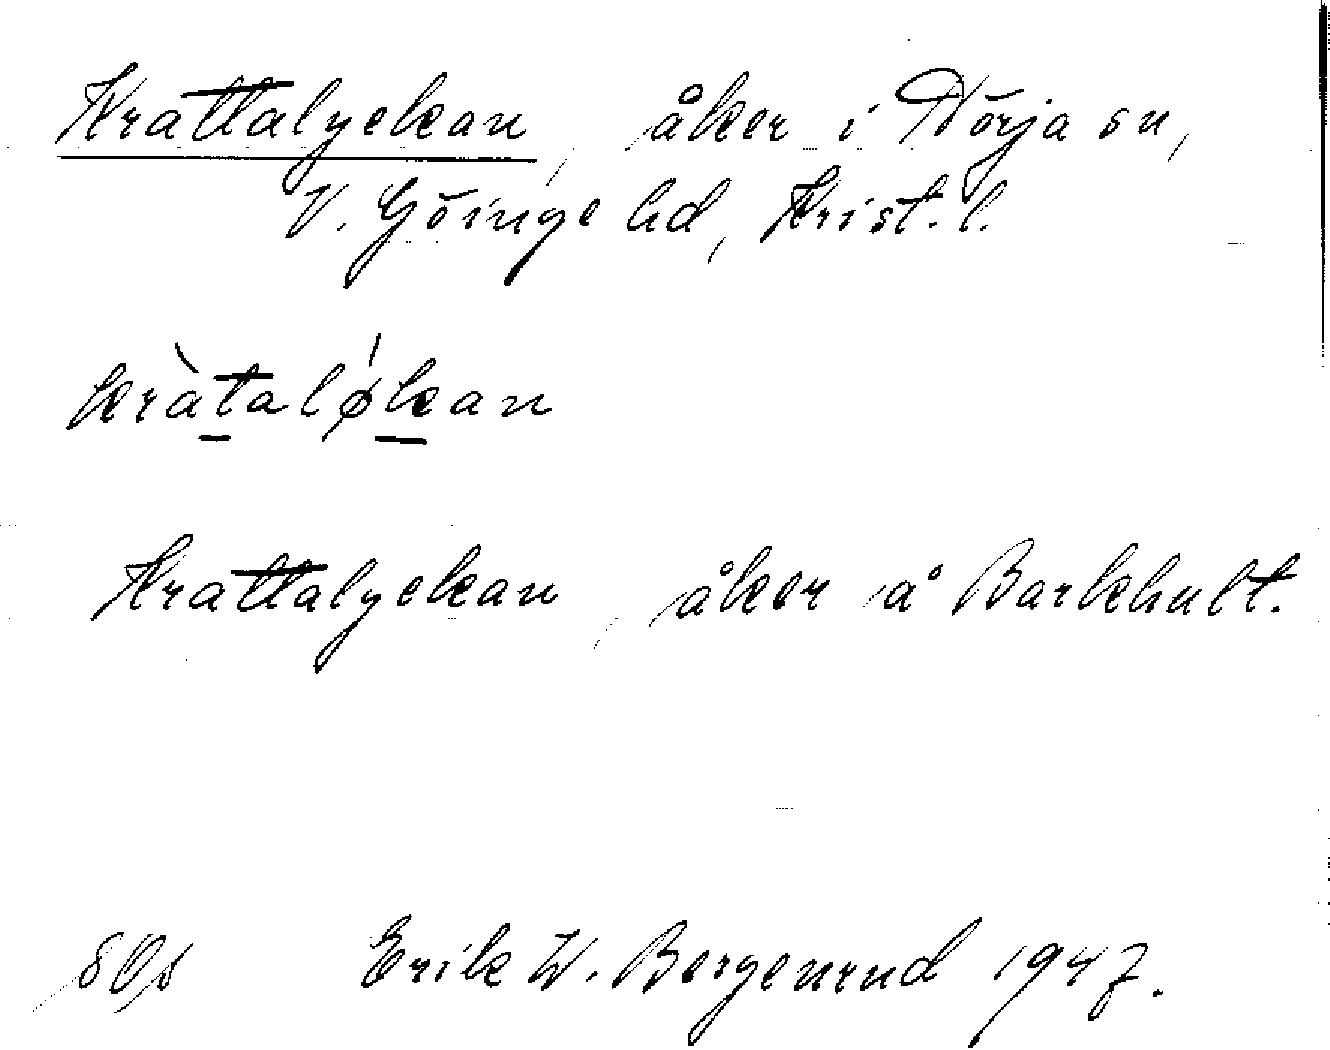 Krattalyckan, åker i Nörja sn,
V. Göinge hd, Krist. l.
kràtaløkan
Krattalyckan, åker å Barkhult.
Erik W. Bergenrud 1947.